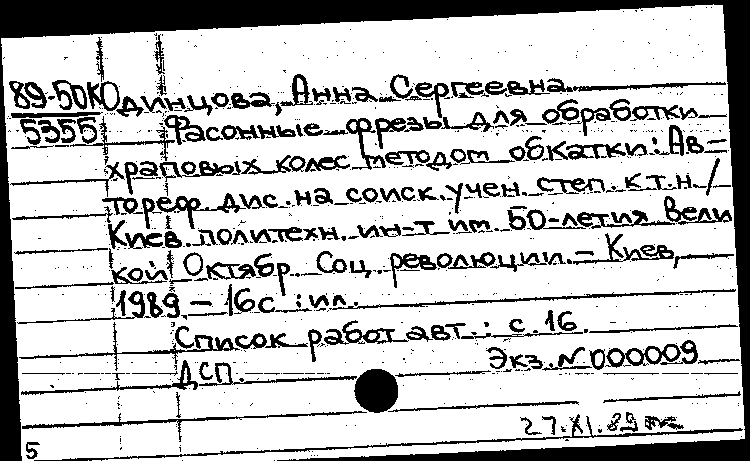 89-50К Одинцова, Анна Сергеевна
5355 Фасонные фрезы для обработки
храповых колес методом обкатки: Ав-
тореф. дис. на соиск. учен. степ. к.т.н. /
Киев. политехн. ин-т им. 50-летия Вели
кой Октябр. Соц. революции. - Киев,
1989. - 16с : ил.
Список работ авт.: с. 16.
ДСП. Экз. N 000009
27.XI.89
5